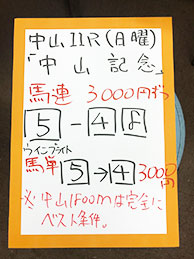 中山11R(日曜)
「中山記念」
馬連 3000円ずつ
5-4 8
ウインブライト
馬単 5→4 3000円
※中山1800mは完全に
ベスト条件。